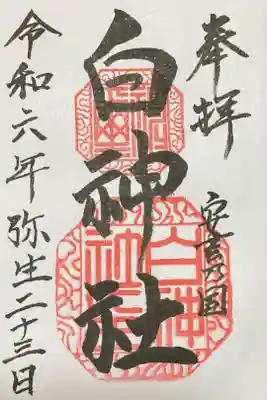 奉拝
安芸乃国
白神社
令和六年弥生二十三日